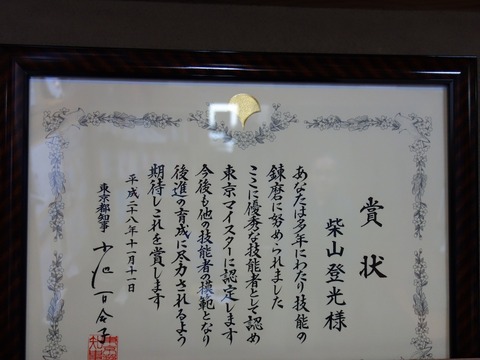 賞状
柴山登光様
あなたは多年にわたり技能の
錬磨に努められました
ここに優秀な技能者として認め
東京マイスターに認定します
今後も他の技能者の模範となり
後進の育成に尽力されるよう
期待しこれを賞します
平成二十八年十一月十一日
東京都知事 小池百合子